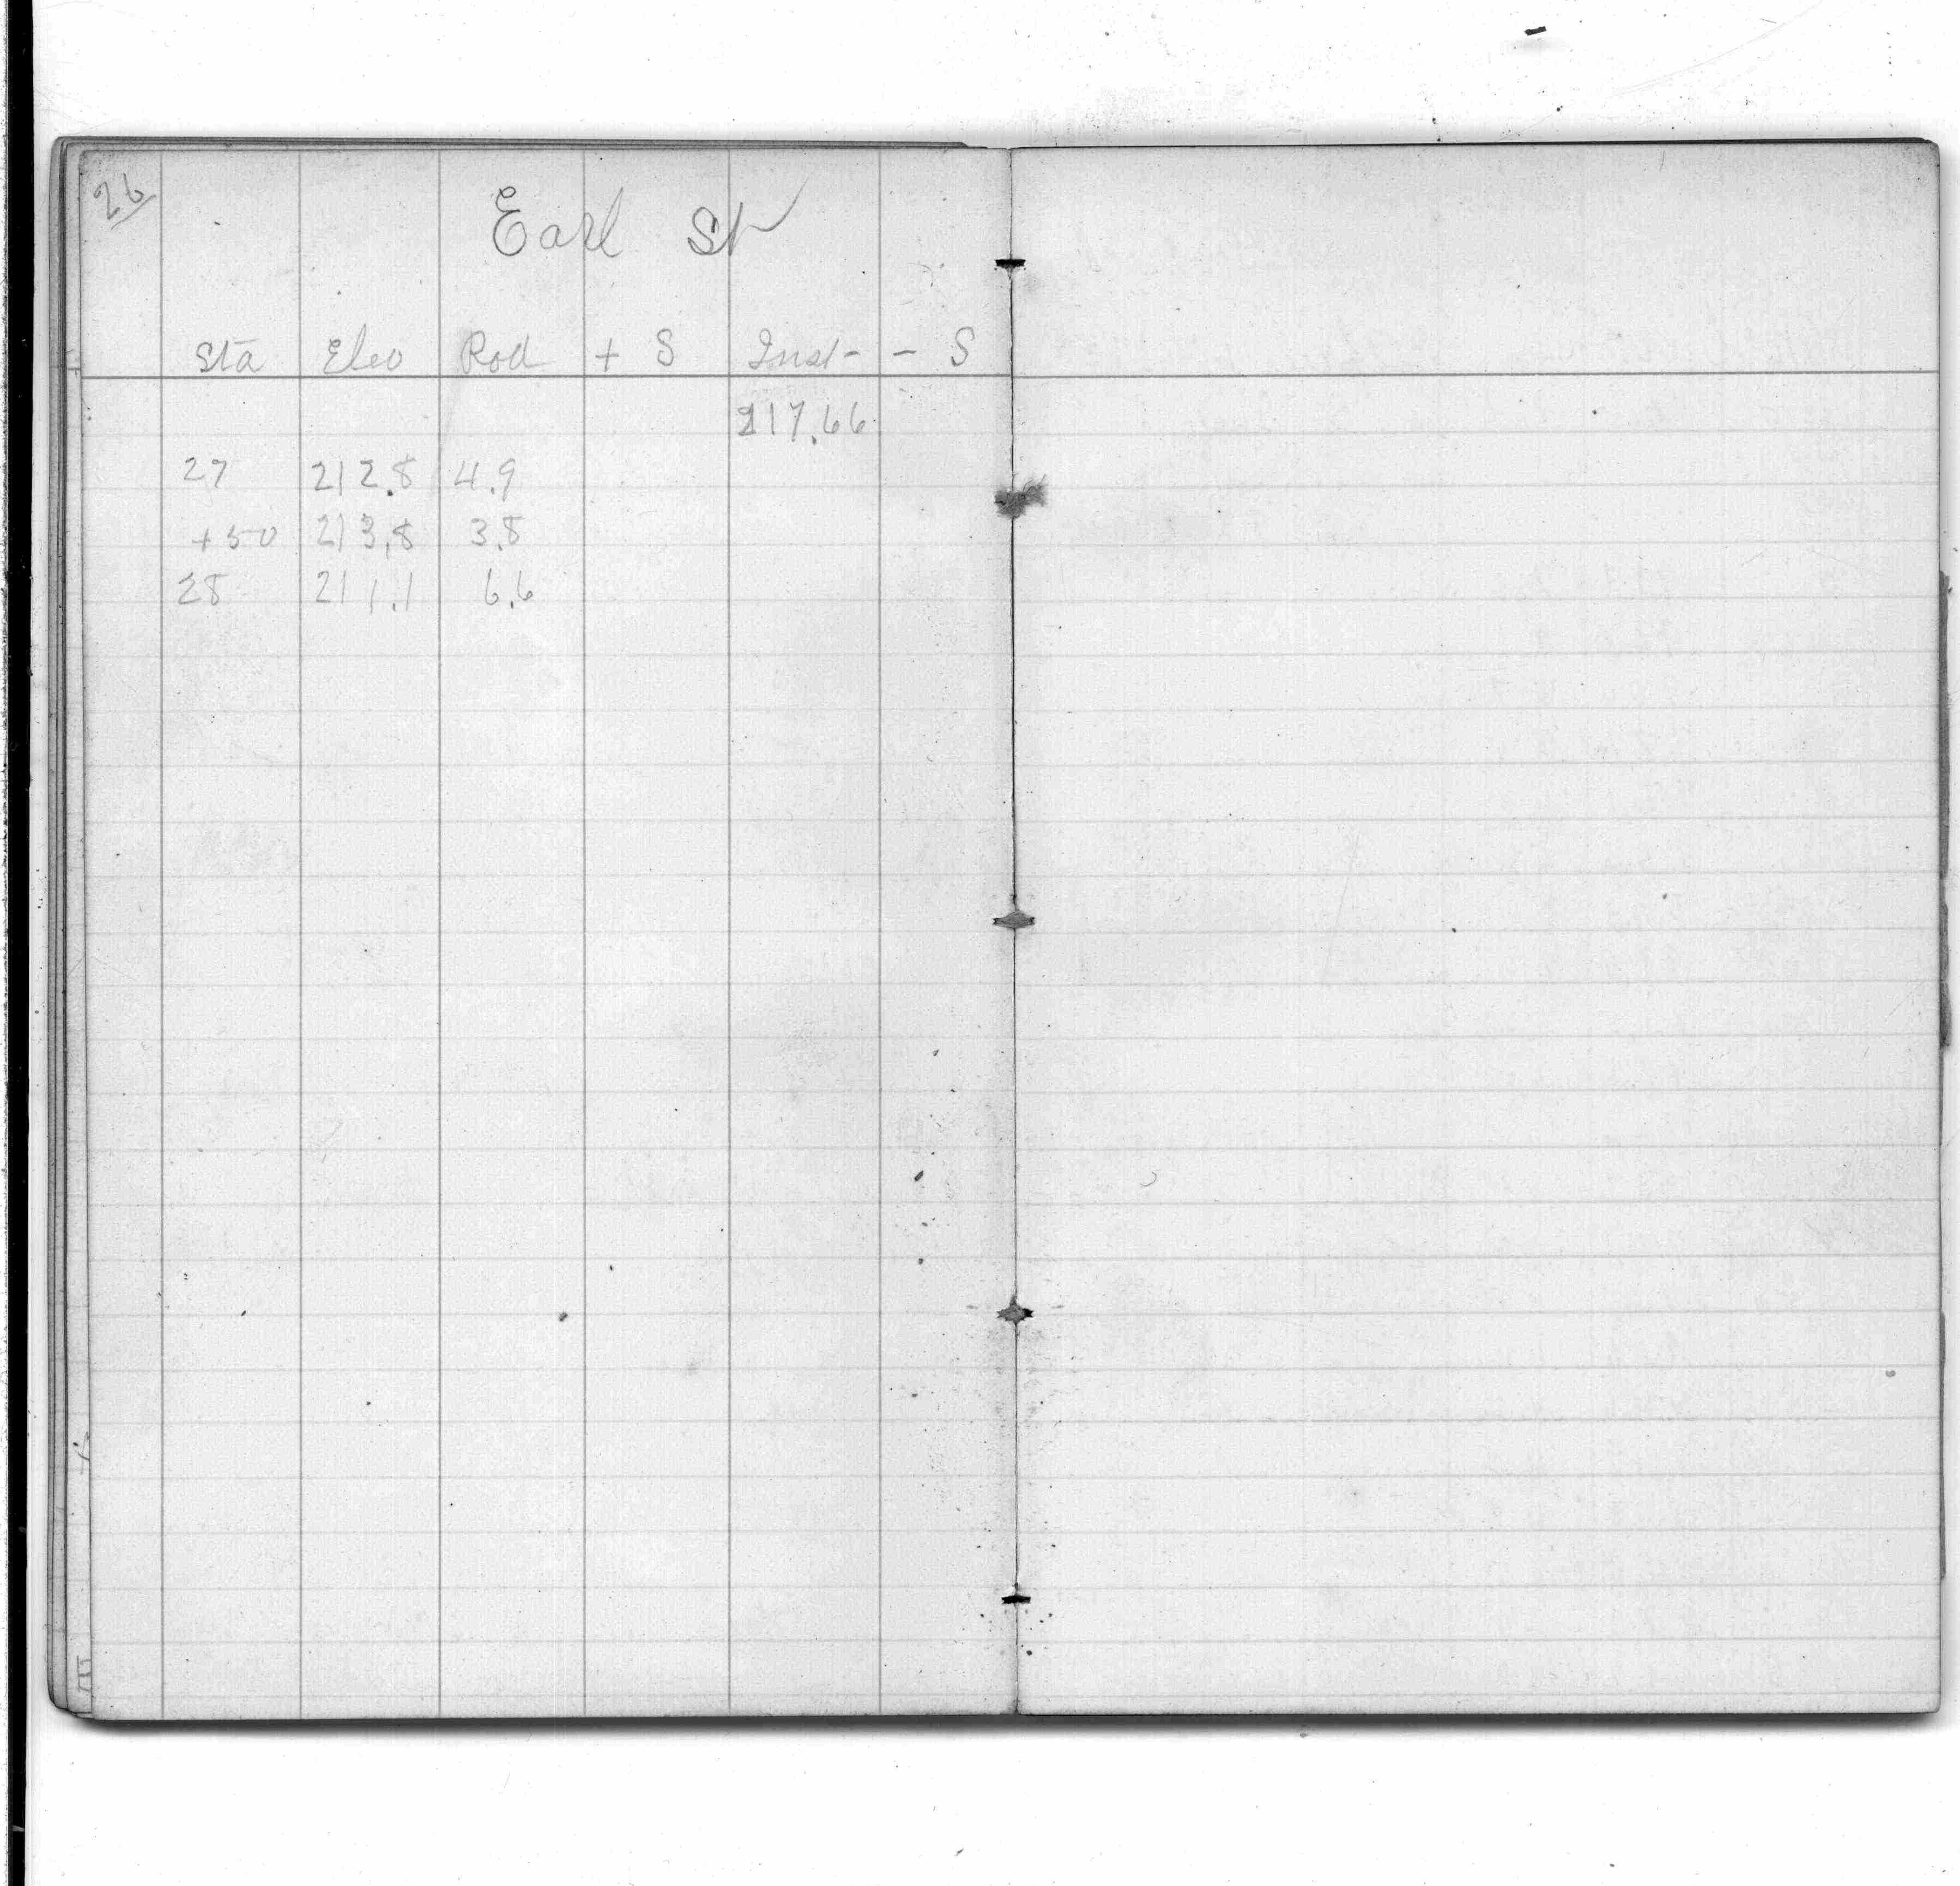 26
Earl St
Sta Elev Rod + S Inst - - S
217.66
27 212.8 4.9
+50 213.8 3.8
28 211.1 6.6